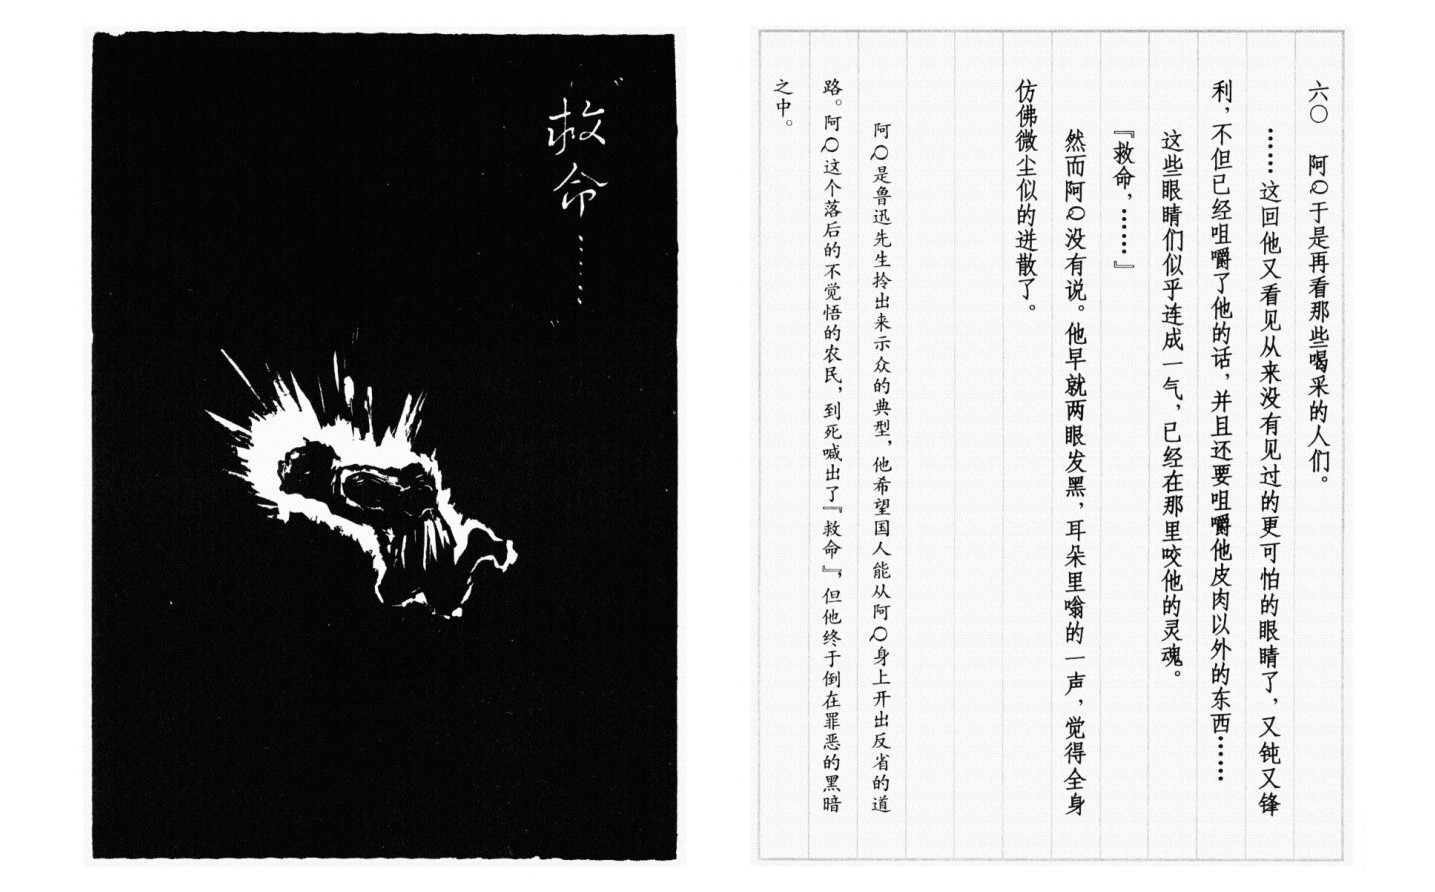 “救命……”
六〇　阿Q于是再看那些喝采的人们。
……这回他又看见从来没有见过的更可怕的眼睛了，又钝又锋
利，不但已经咀嚼了他的话，并且还要咀嚼他皮肉以外的东西……
这些眼睛们似乎连成一气，已经在那里咬他的灵魂。
『救命，……』
然而阿Q没有说。他早就两眼发黑，耳朵里嗡的一声，觉得全身
仿佛微尘似的迸散了。
阿Q是鲁迅先生拎出来示众的典型，他希望国人能从阿Q身上开出反省的道
路。阿Q这个落后的不觉悟的农民，到死喊出了『救命』，但他终于倒在罪恶的黑暗
之中。